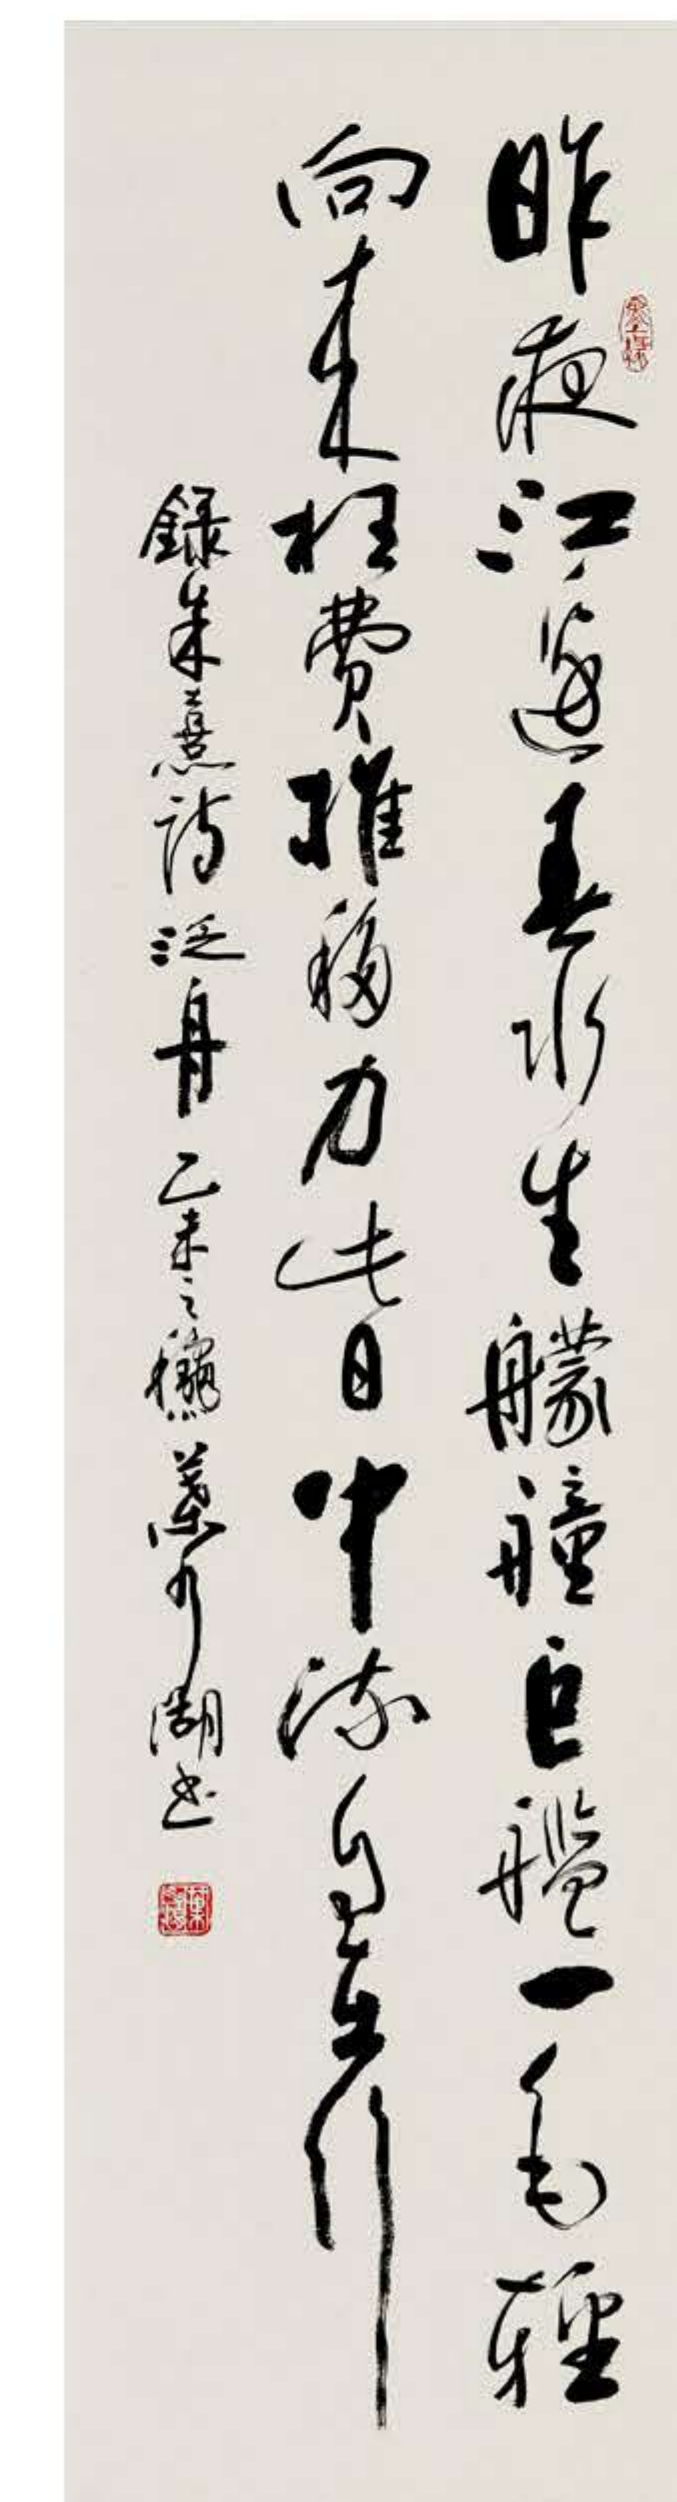 昨夜江邊春水生艨艟巨艦一毛輕
向來枉費推移力此日中流自在行
錄朱熹詩泛舟乙未之龝葉湖書